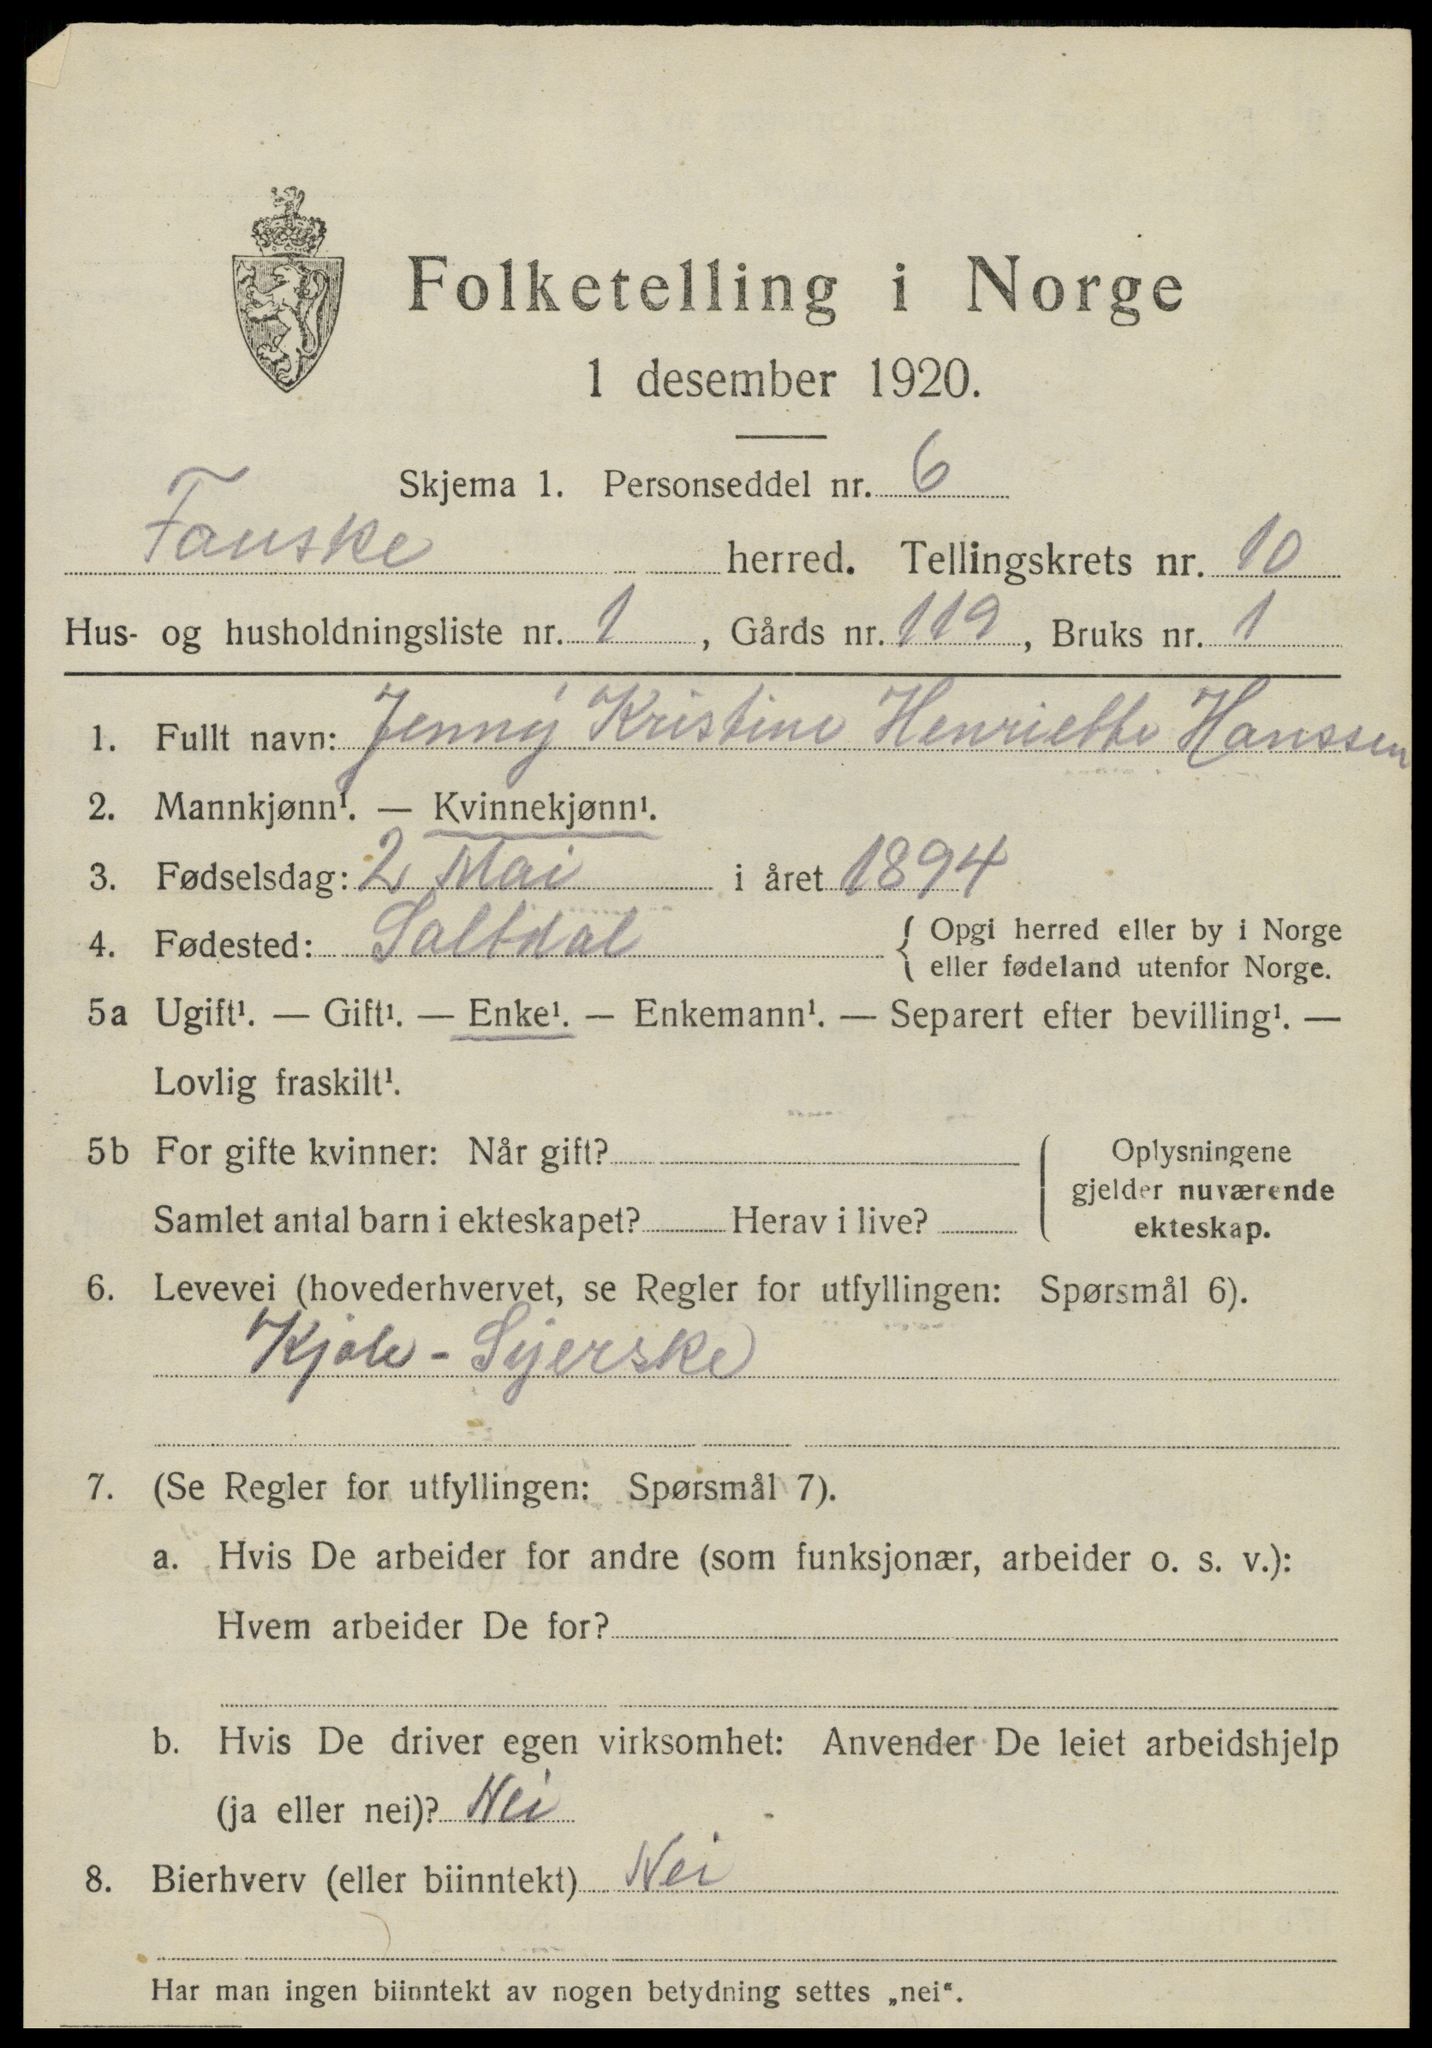 Folketelling i Norge
1 desember 1920.
Skjema 1. Personseddel nr. 6
Fauske herred. Tellingskrets nr. 10
Hus- og husholdningsliste nr. 1, Gårds nr. 119, Bruks nr. 1
1. Fullt navn: Jenny Kristine Henriette Hanssen
2. Mannkjønn¹. — Kvinnekjønn¹.
3. Fødselsdag: 2 Mai i året 1894
4. Fødested: Saltdal { Opgi herred eller by i Norge
eller fødeland utenfor Norge.
5a Ugift¹. — Gift¹. — Enke¹. — Enkemann¹. — Separert efter bevilling¹. —
Lovlig fraskilt¹.
5b For gifte kvinner: Når gift? { Oplysningene
gjelder nuværende
Samlet antal barn i ekteskapet? Herav i live? ekteskap.
6. Levevei (hovederhvervet, se Regler for utfyllingen: Spørsmål 6).
Kjole-Syerske
7. (Se Regler for utfyllingen: Spørsmål 7).
a. Hvis De arbeider for andre (som funksjonær, arbeider o. s. v.):
Hvem arbeider De for?
b. Hvis De driver egen virksomhet: Anvender De leiet arbeidshjelp
(ja eller nei)? Nei
8. Bierhverv (eller biinntekt) Nei
Har man ingen biinntekt av nogen betydning settes „nei“.